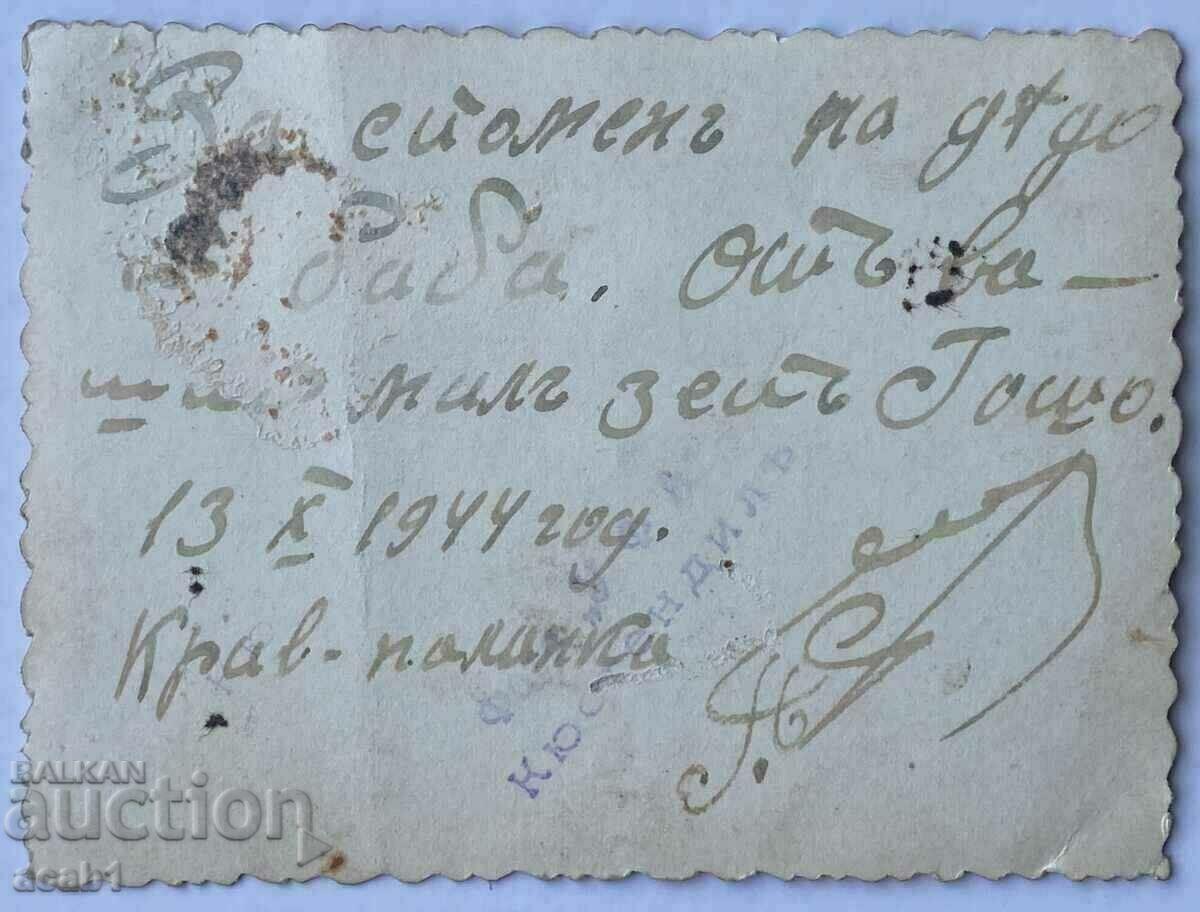 За споменъ на дѣдо
баба. Отъ ва-
мил зетъ Гошо.
13 X 1944 год.
Крив-паланка
КЮСТЕНДИЛЪ
BALKAN
auction
acab1